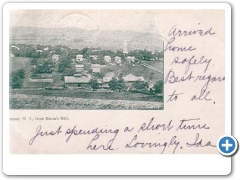 Arrived
home
safely.
Best regards
to all.
N. Y., from Hill.
Just spending a short time
here. Lovingly, Ida